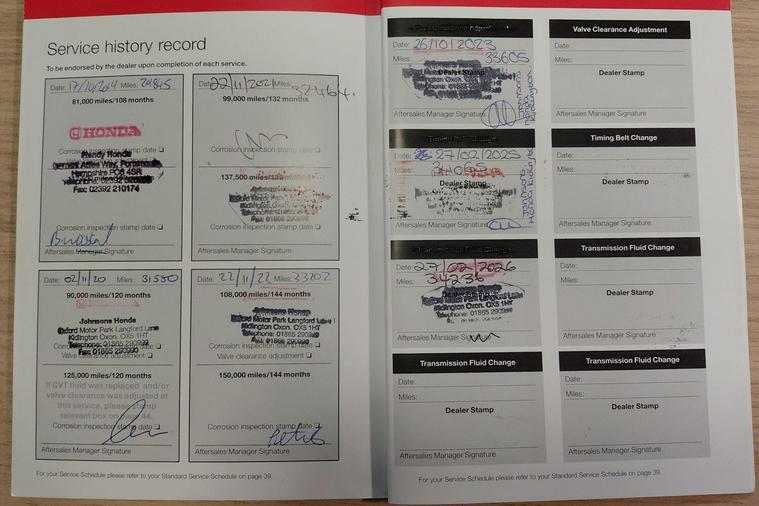 Service history record
To be endorsed by the dealer upon completion of each service.
Date: 17/10/2014 Miles: 29845
81,000 miles/108 months
HONDA
Hendy Honda
Way, Portsmouth
Hampshire PO6 4SR
Fax: 02392 210174
Corrosion inspection stamp date
Aftersales Manager Signature
Date: 22/11/2021 Miles: 32464.
99,000 miles/132 months
Corrosion inspection stamp date
137,500 miles/
Kidlington Oxon. OX5 1HT
Corrosion inspection stamp date
Aftersales Manager Signature
Date: 02/11/20 Miles: 31550
90,000 miles/120 months
Johnsons Honda
Oxford Motor Park Langford Lane
Kidlington Oxon. OX5 1HT
Telephone: 01865
Fax: 01865
Corrosion inspection stamp date
Valve clearance adjustment
125,000 miles/120 months
If CVT fluid was replaced and/or
valve clearance was adjusted at
this service, please stamp
relevant box on page 44.
Corrosion inspection stamp date
Aftersales Manager Signature
Date: 22/11/22 Miles: 33202
108,000 miles/144 months
Johnsons Honda
Oxford Motor Park Langford Lane
Kidlington Oxon. OX5 1HT
Telephone: 01865
Corrosion inspection stamp date
Valve clearance adjustment
150,000 miles/144 months
Corrosion inspection stamp date
Aftersales Manager Signature
For your Service Schedule please refer to your Standard Service Schedule on page 39.
Date: 26/10/2023
Miles: 33605
Dealer Stamp
Aftersales Manager Signature
Date: 27/02/2025
Miles: 34065
Dealer Stamp
Aftersales Manager Signature
Date: 27/02/2026
Miles: 34236
Oxford Motor Park Langford Lane
Kidlington Oxon. OX5 1HT
Aftersales Manager
Transmission Fluid Change
Date:
Miles:
Dealer Stamp
Aftersales Manager Signature
Valve Clearance Adjustment
Date:
Miles:
Dealer Stamp
Aftersales Manager Signature
Timing Belt Change
Date:
Miles:
Dealer Stamp
Aftersales Manager Signature
Transmission Fluid Change
Date:
Miles:
Dealer Stamp
Aftersales Manager Signature
Transmission Fluid Change
Date:
Miles:
Dealer Stamp
Aftersales Manager Signature
For your Service Schedule please refer to your Standard Service Schedule on page 39.